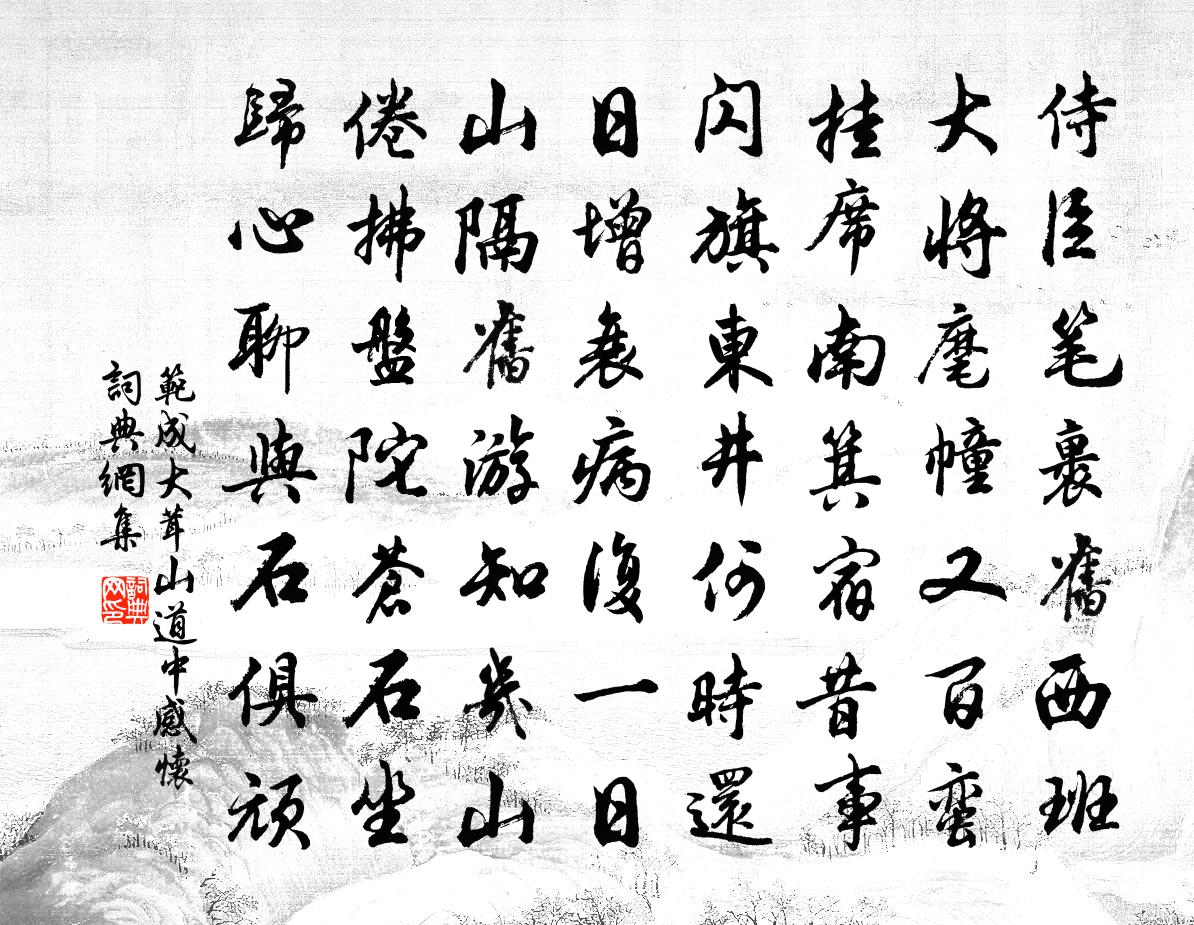 侍臣笔裹舊西班
大將麾幢又百蠻
挂席南箕宿昔事
闪旗東井何時還
日增衰病復一日
山隔舊游知幾山
倦拂盤陀蒼石坐
歸心聊與石俱頑
範成大茸山道中感懷
詞典網集
詞典网印